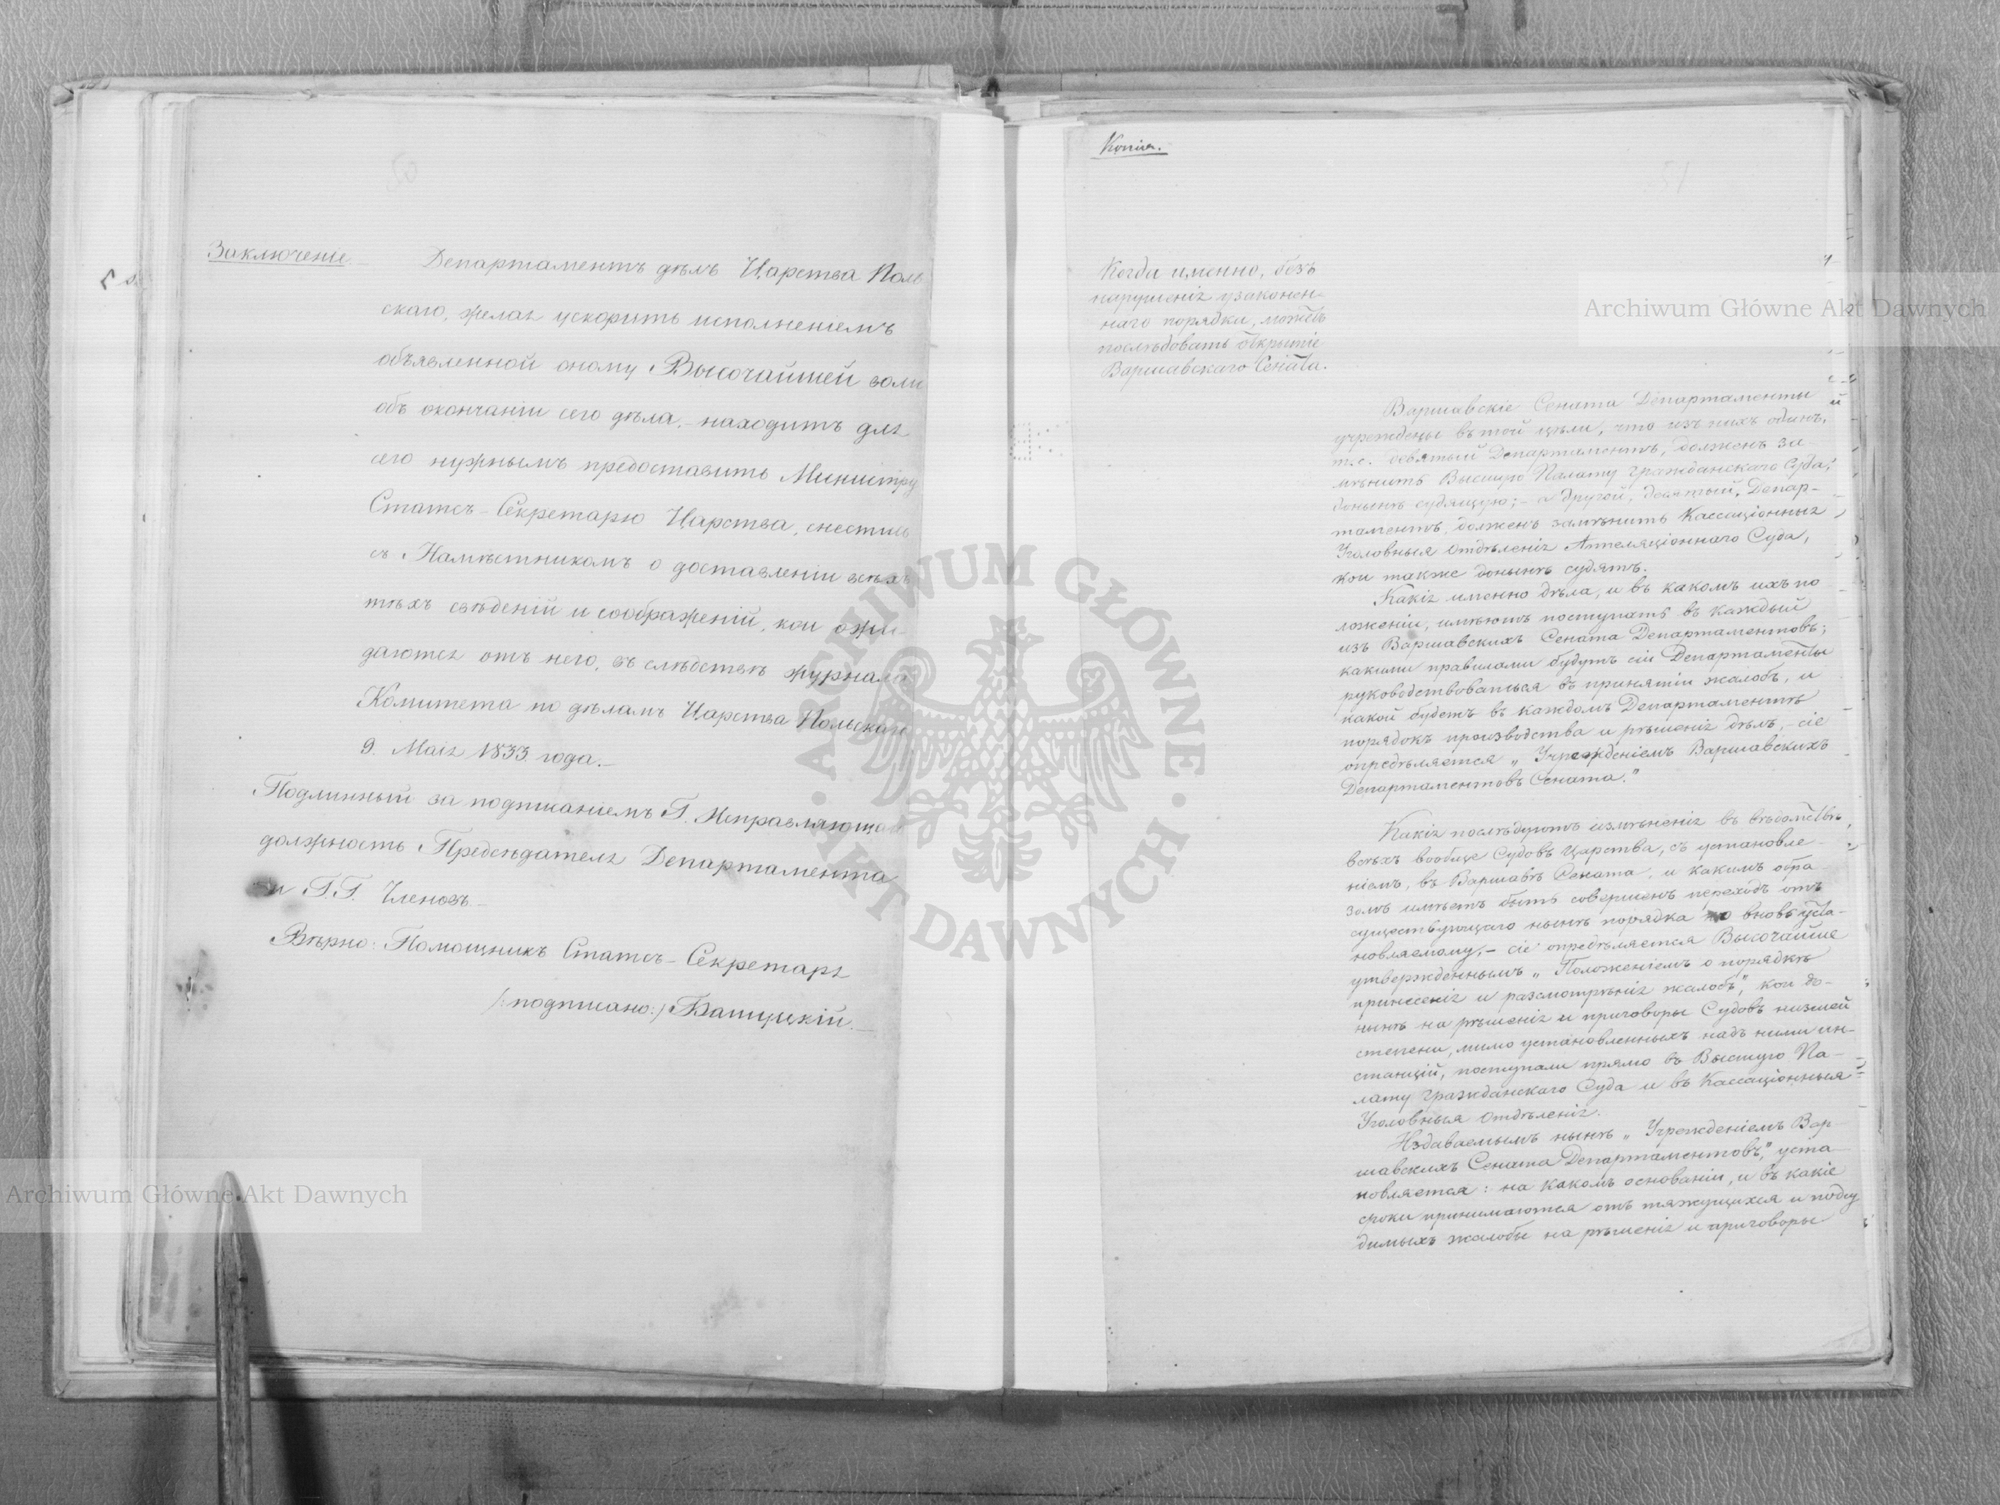 Заключеніе.
Департаментъ дѣлъ Царства Поль
скаго, желая ускорить исполненіемъ
объявленной оному Высочайшей воли
объ окончаніи сего дѣла,- находитъ для
сего нужнымъ предоставить Министру
Статсъ-Секретарю Царства, снестись
съ Намѣстникомъ о доставленіи всѣхъ
тѣхъ свѣденій и соображеній, кои ожи-
даются отъ него, въ слѣдствіе журнала
Комитета по дѣламъ Царства Польскаго
9. Маія 1833 года.-
Подлинный за подписаніемъ Г. Исправляющаго
должность Предсѣдателя Департамента
и Г.Г. Членовъ.-
Вѣрно: Помощникъ Статсъ-Секретаря
(:подписано:) Башуцкій.-
Копія.
51
Когда именно, безъ
нарушенія узаконен-
наго порядка, можетъ
послѣдовать открытіе
Варшавскаго Сената.
Варшавскіе Сената Департаменты
учреждены въ той цѣли, что изъ нихъ одинъ,
т.е. девятый Департаментъ, долженъ за-
мѣнить Высшую Палату Гражданскаго Суда,
донынѣ судящую;- а другой, десятый, Депар-
таментъ, долженъ замѣнить Кассаціонныя
Уголовныя Отдѣленія Аппеляціоннаго Суда,
кои также донынѣ судятъ.
Какія именно дѣла, и въ какомъ ихъ по
ложеніи, имѣютъ поступать въ каждый
изъ Варшавскихъ Сената Департаментовъ;
какими правилами будутъ сіи Департаменты
руководствоваться въ принятіи жалобъ, и
какой будетъ въ каждомъ Департаментѣ
порядокъ производства и рѣшенія дѣлъ,- сіе
опредѣляется „Учрежденіемъ Варшавскихъ
Департаментовъ Сената."
Какія послѣдуютъ измѣненія въ вѣдомствѣ
всѣхъ вообще Судовъ Царства, съ установле-
ніемъ, въ Варшавѣ Сената, и какимъ обра-
зомъ имѣетъ быть совершенъ переходъ отъ
существующаго нынѣ порядка ко вновь уста-
новляемому,- сіе опредѣляется Высочайше
утвержденнымъ „Положеніемъ о порядкѣ
принесенія и разсмотрѣнія жалобъ", кои до-
нынѣ на рѣшенія и приговоры Судовъ низшей
степени, мимо установленныхъ надъ ними ин-
станцій, поступали прямо въ Высшую Па-
лату Гражданскаго Суда и въ Кассаціонныя
Уголовныя Отдѣленія.
Издаваемымъ нынѣ „Учрежденіемъ Вар-
шавскихъ Сената Департаментовъ," уста-
новляется: на какомъ основаніи, и въ какіе
сроки принимаются отъ тяжущихся и подсу
димыхъ жалобы на рѣшенія и приговоры
Archiwum Główne Akt Dawnych
Archiwum Główne Akt Dawnych
ARCHIWUM GŁÓWNE
AKT DAWNYCH